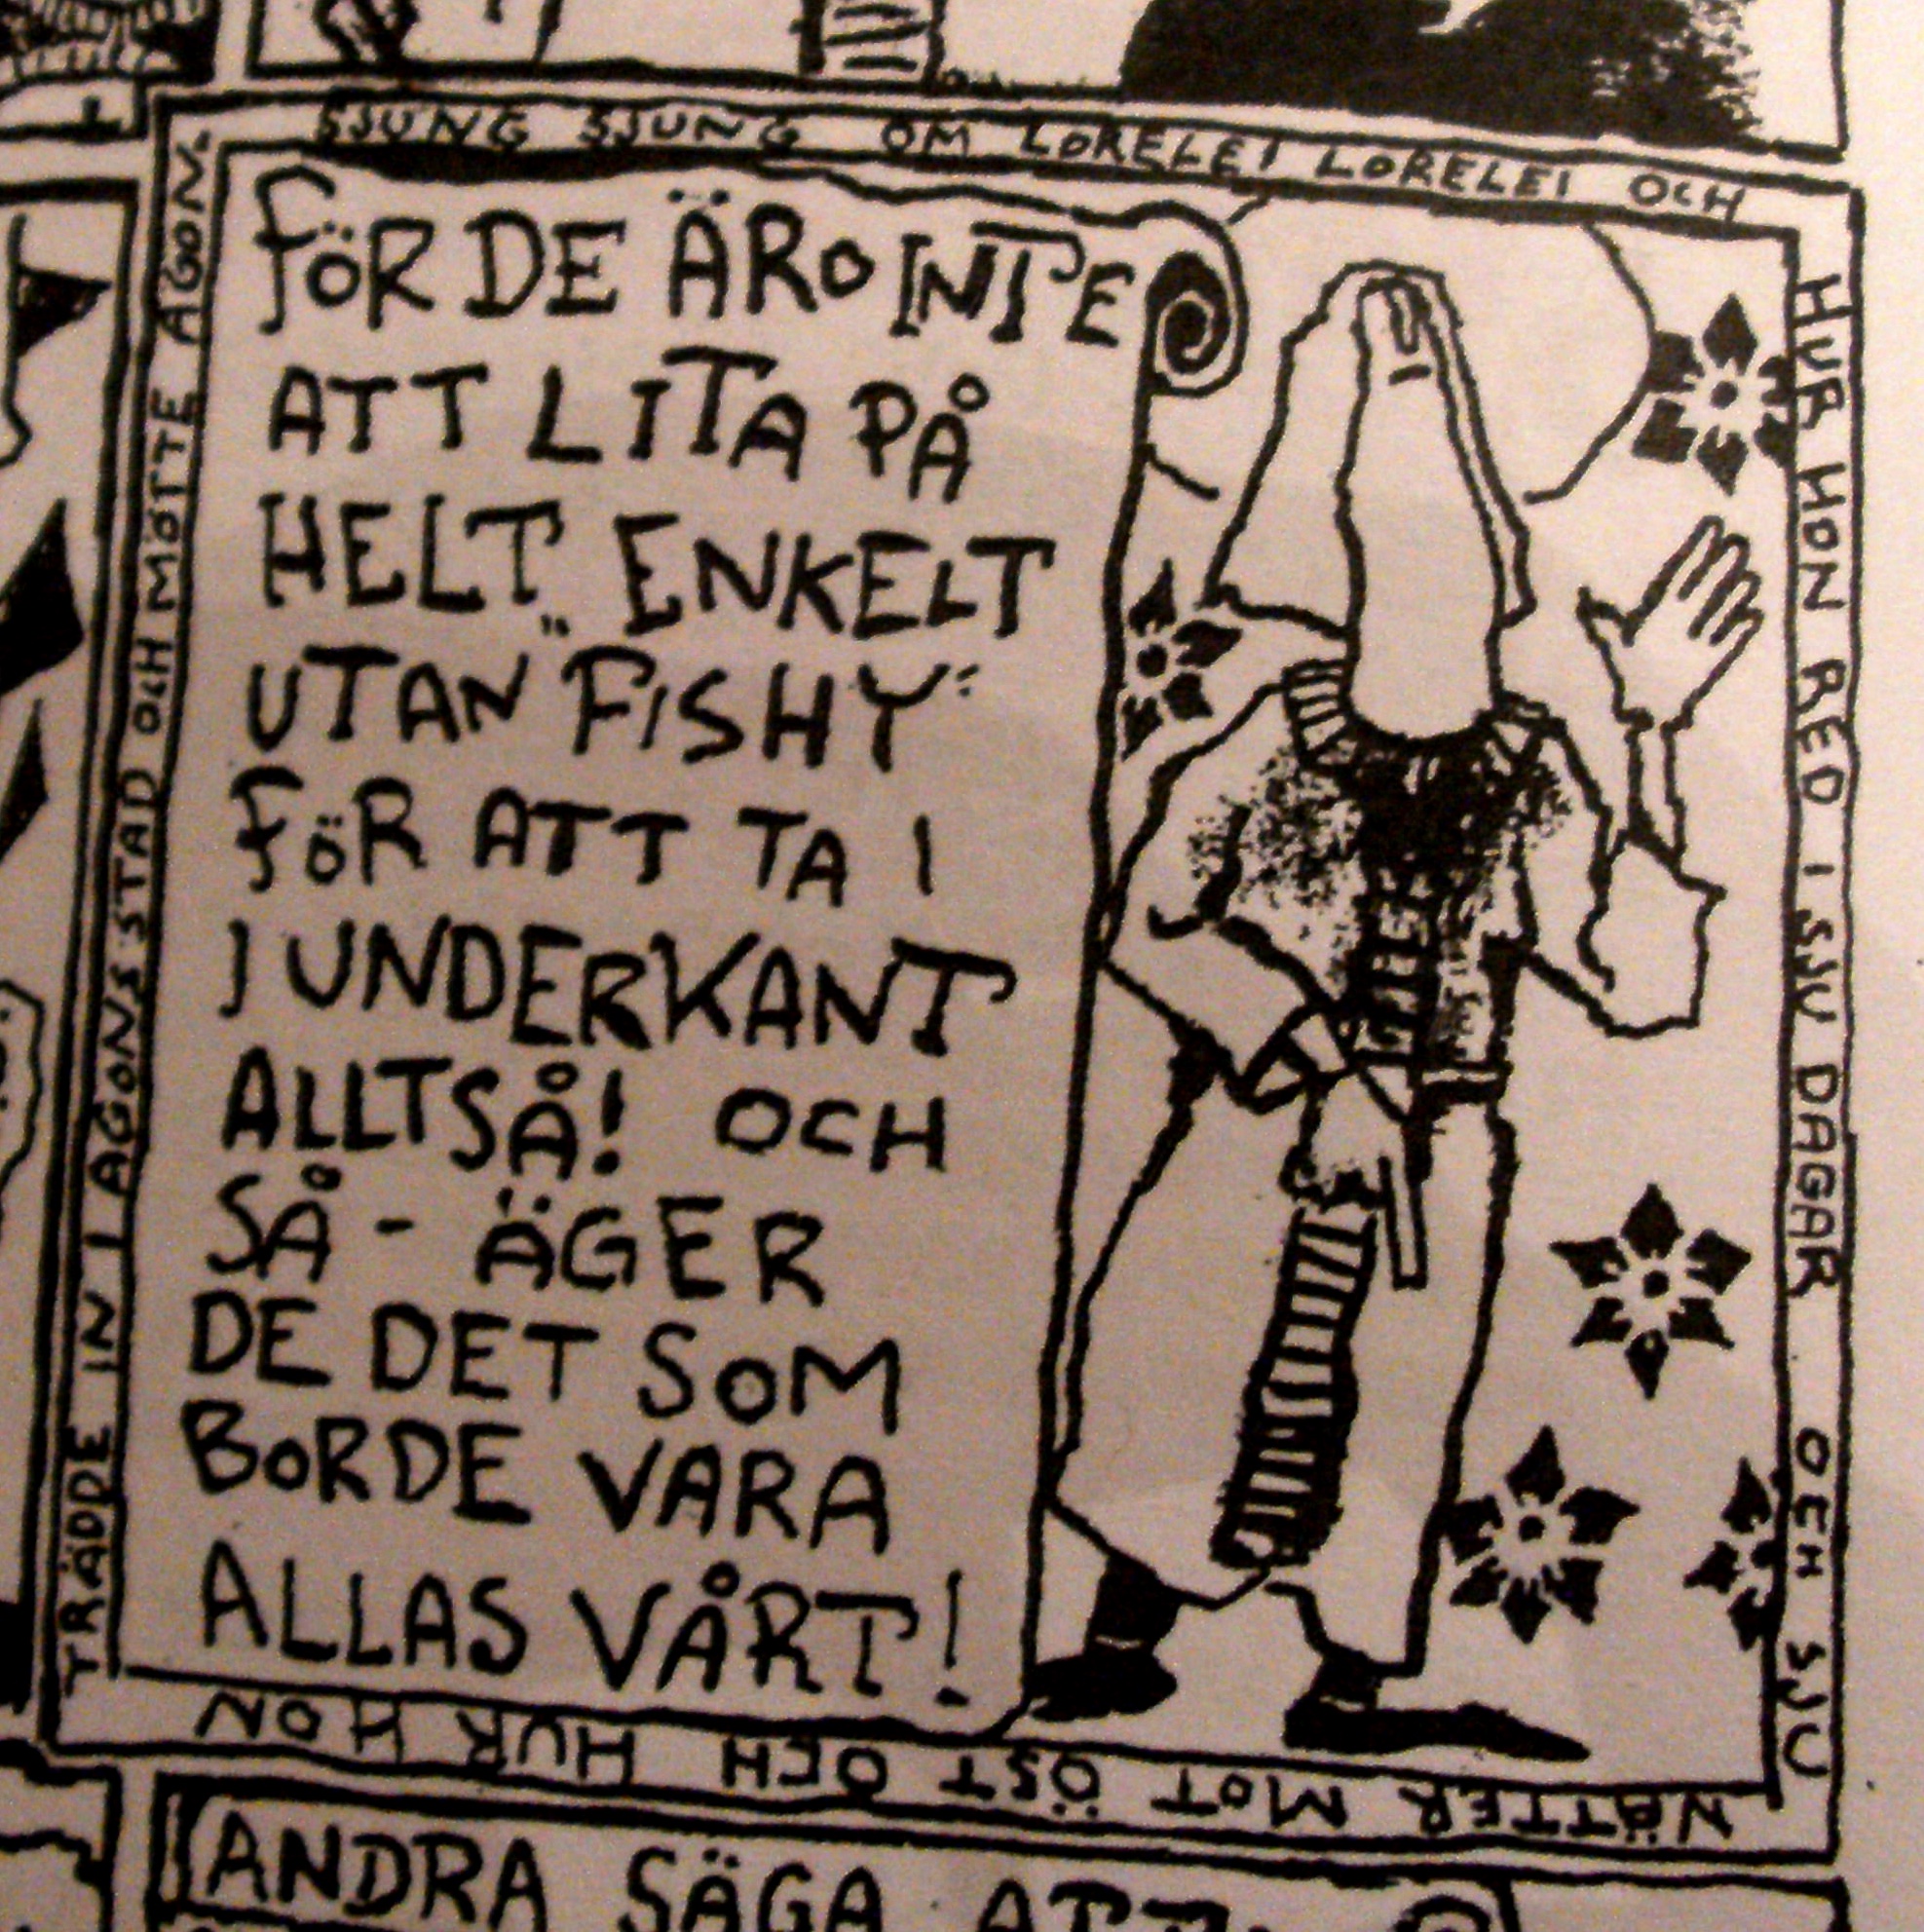 SJUNG SJUNG OM LORELEI LORELEI OCH
HUR HON RED I SJU DAGAR OCH SJU
NÄTTER MOT ÖST OCH HUR HON
TRÄDDE IN I AGONS STAD OCH MÖTTE AGON.
FÖR DE ÄRO INTE
ATT LITA PÅ
HELT ENKELT
UTAN "FISHY"
FÖR ATT TA I
I UNDERKANT
ALLTSÅ! OCH
SÅ - ÄGER
DE DET SOM
BORDE VARA
ALLAS VÅRT!
ANDRA SÄGA ATT